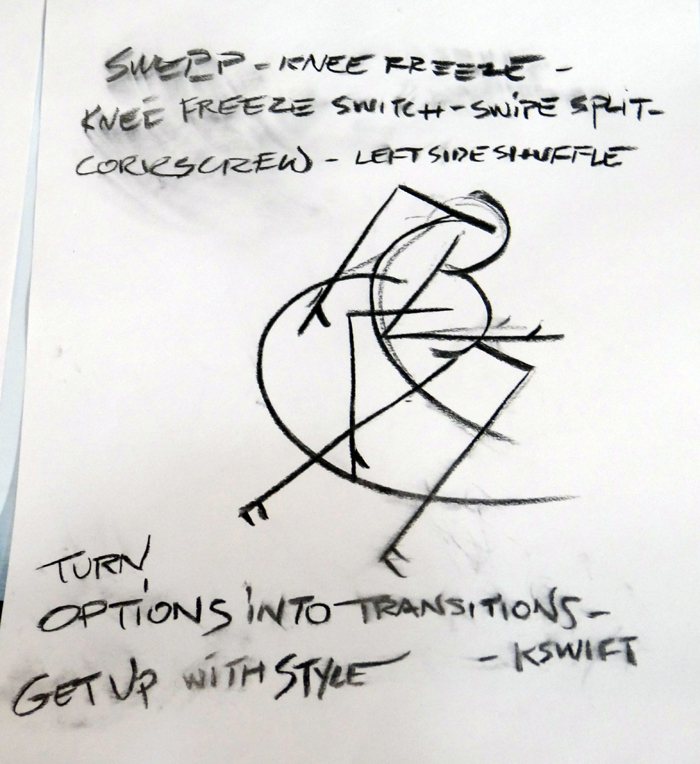 SWEEP - KNEE FREEZE -
KNEE FREEZE SWITCH - SWIPE SPLIT -
CORKSCREW - LEFT SIDE SHUFFLE
TURN
OPTIONS INTO TRANSITIONS -
GET UP WITH STYLE - KSWIFT